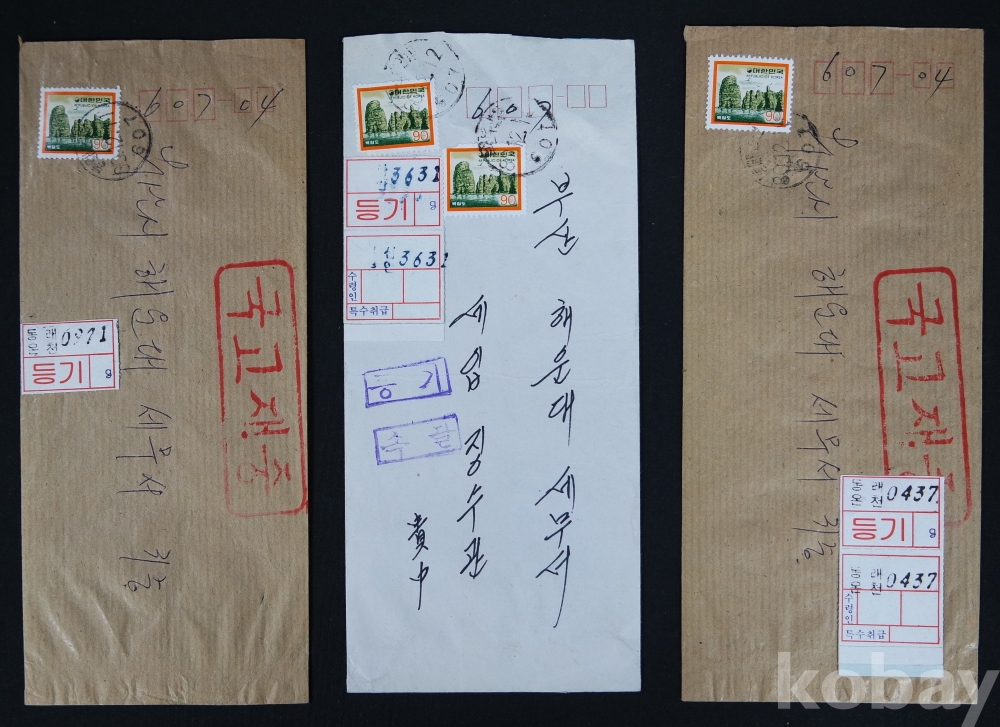 대한민국
REPUBLIC OF KOREA
90
607-04
부산시 해운대 세무서 귀중
국고재중
동래
온천
0971
등기
g
대한민국
REPUBLIC OF KOREA
90
북일도
대한민국
REPUBLIC OF KOREA
90
607
3631
등기
g
3631
수령인
특수취급
등기
속달
부산 해운대 세무서
세입 징수관
貴中
대한민국
REPUBLIC OF KOREA
90
607-04
부산시 해운대 세무서 귀중
국고재중
동래
온천
0437
등기
g
동래
온천
0437
수령인
특수취급
kobay